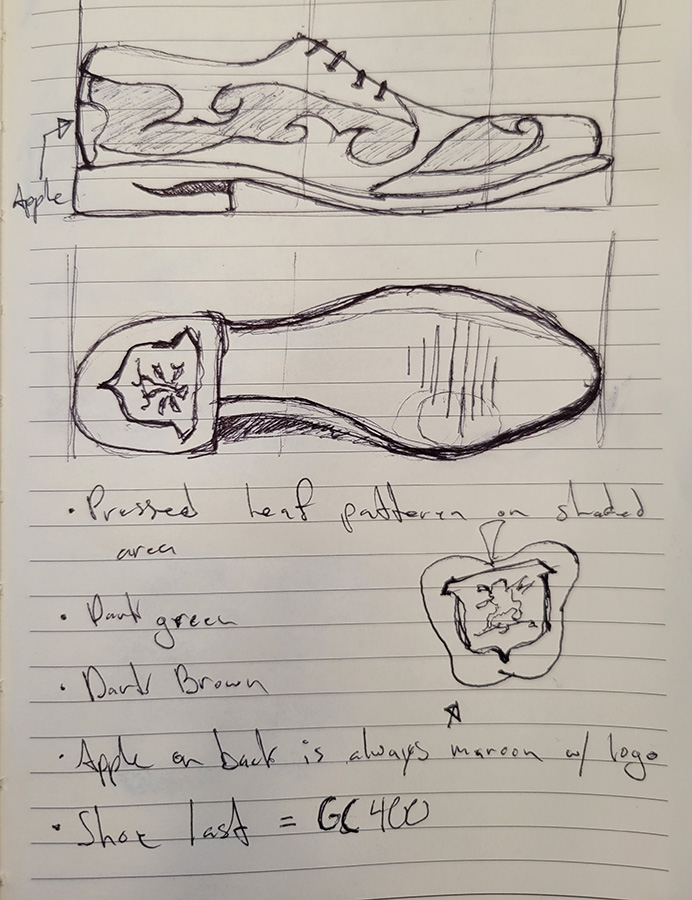 Apple
• Pressed leaf pattern on shaded
area
• Dark green
• Dark Brown
• Apple on back is always maroon w/ logo
• Shoe last = GC400